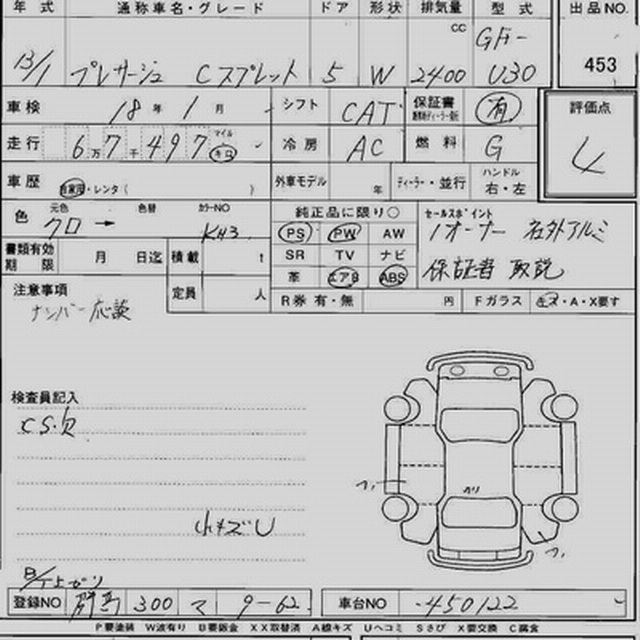 年式 通称車名・グレード ドア 形状 排気量 型式 出品NO.
13/1 プレサージュ Cスプレット 5 W 2400 cc GF- U30 453
車検 18年 1月 シフト CAT 保証書 有 評価点
走行 6万7千497 マイル キロ 冷房 AC 燃料 G 4
車歴 自家用・レンタ( ) 外車モデル 年 ディーラー・並行 ハンドル 右・左
色 元色 クロ → 色替 カラーNO KH3 純正品に限り○ セールスポイント
PS PW AW 1オーナー 社外アルミ
書類有効期限 月 日迄 積載 t SR TV ナビ 保証書 取説
定員 人 革 エアB ABS
R券 有・無 円 Fガラス 生ズ・A・X要す
注意事項
ナンバー応談
検査員記入
CS欠
小キズU
登録NO 群馬 300 マ 9-62 車台NO -450122
P要塗装 W波有り B要鈑金 XX取替済 A線キズ Uヘコミ Sさび X要交換 C腐食